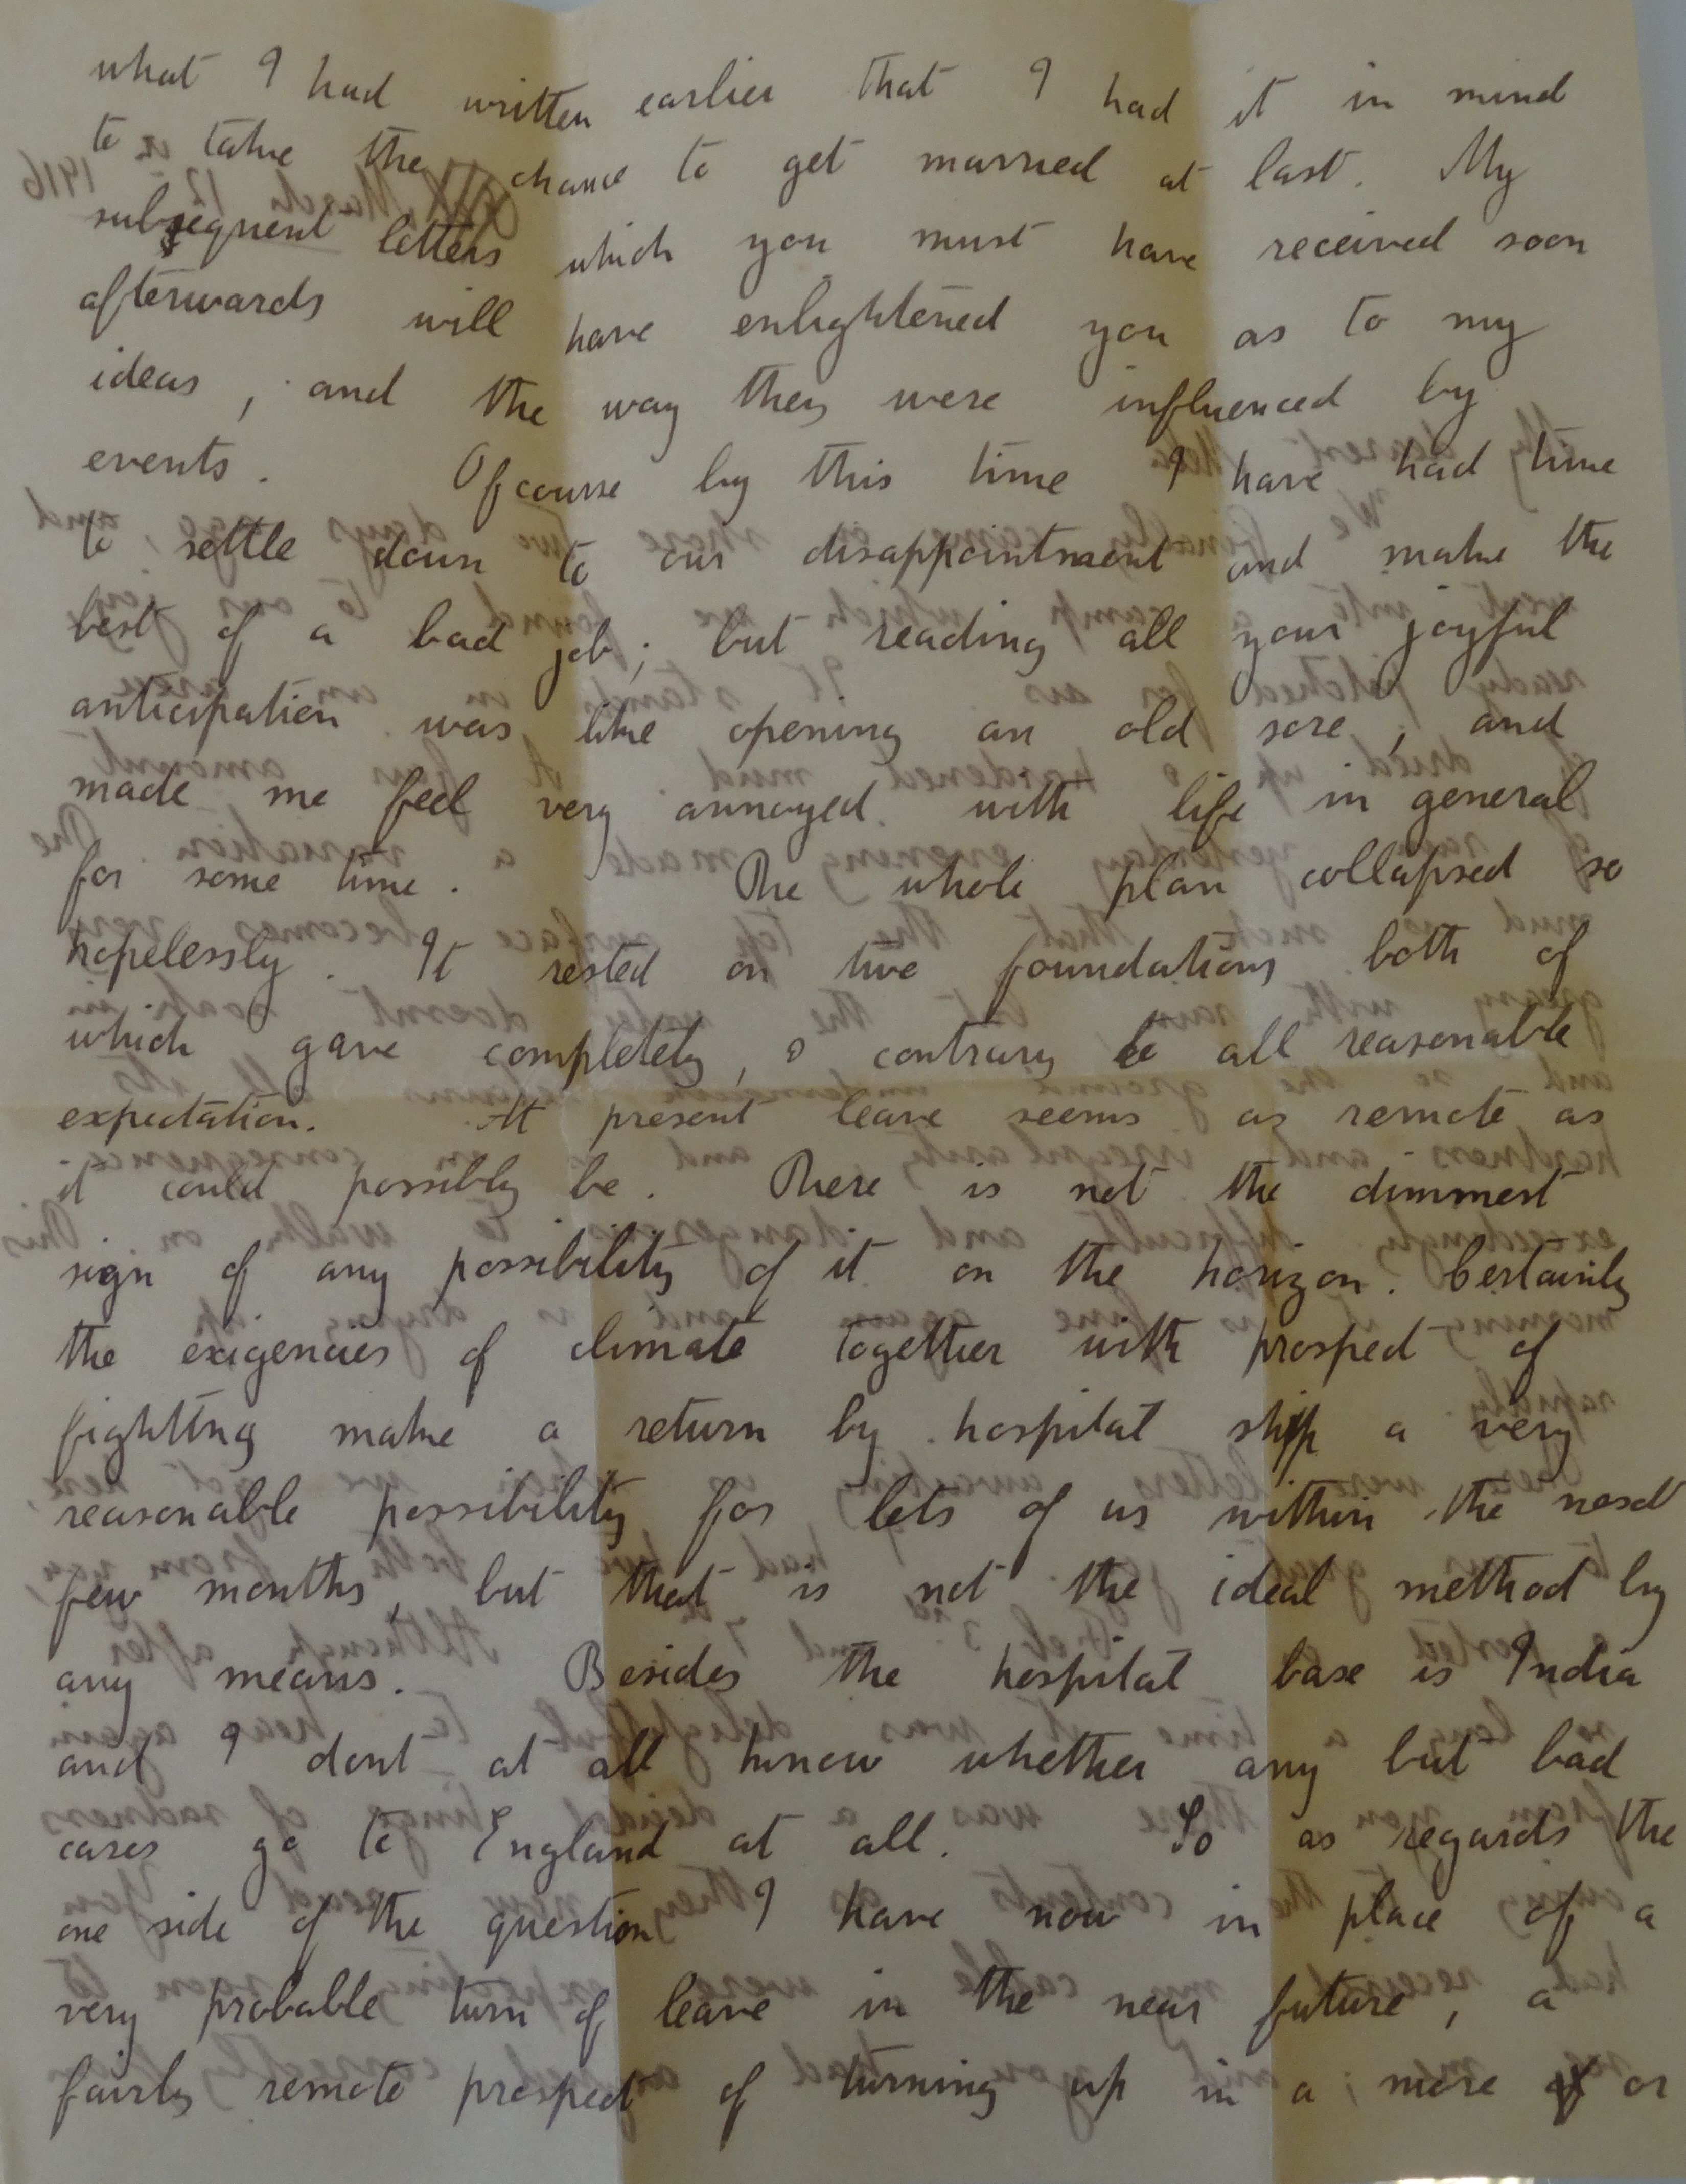 what I had written earlier that I had it in mind
to take the chance to get married at last. My
subsequent letters which you must have received soon
afterwards will have enlightened you as to my
ideas, and the way they were influenced by
events. Of course by this time I have had time
to settle down to our disappointment and make the
best of a bad job; but reading all your joyful
anticipation was like opening an old sore, and
made me feel very annoyed with life in general
for some time. The whole plan collapsed so
hopelessly. It rested on two foundations both of
which gave completely, & contrary to all reasonable
expectation. At present leave seems as remote as
it could possibly be. There is not the dimmest
sign of any possibility of it on the horizon. Certainly
the exigencies of climate together with prospect of
fighting make a return by hospital ship a very
reasonable possibility for lots of us within the next
few months, but that is not the ideal method by
any means. Besides the hospital base is India
and I dont at all know whether any but bad
cases go to England at all. So as regards the
one side of the question I have now in place of a
very probable turn of leave in the near future, a
fairly remote prospect of turning up in a; more or